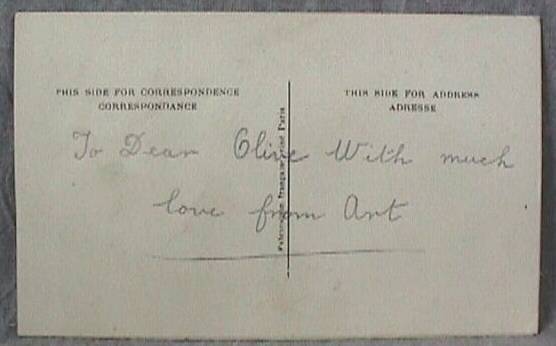 THIS SIDE FOR CORRESPONDENCE
CORRESPONDANCE
THIS SIDE FOR ADDRESS
ADRESSE
To Dear Olive With much
love from Art
Paris